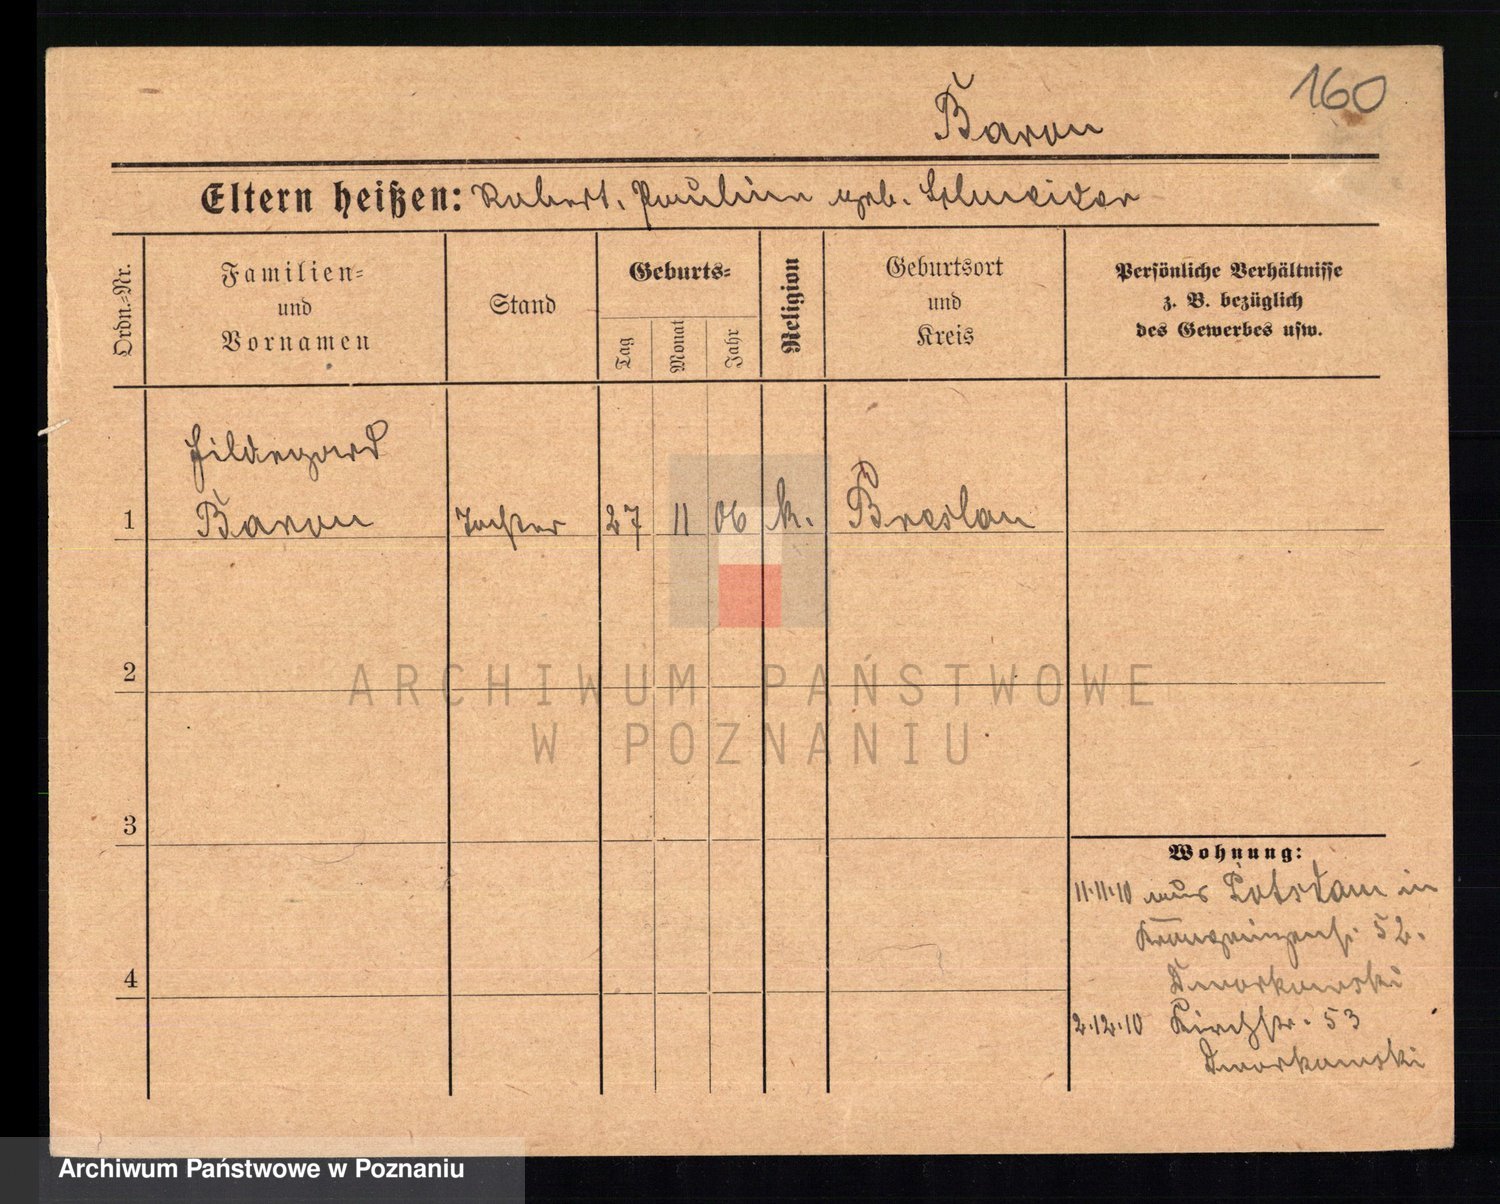 160
Baron
Eltern heißen: Robert, Pauline geb. Schneider
Ordn.=Nr.
Familien=
und
Vornamen
Stand
Geburts=
Tag
Monat
Jahr
Religion
Geburtsort
und
Kreis
Persönliche Verhältnisse
z. B. bezüglich
des Gewerbes usw.
Hildegard
1 Baron Tochter 27 11 06 k. Breslau
2
3
4
Wohnung:
11.11.10 aus Potsdam in
Kronprinzenstr. 52.
Dworkowski
2.12.10 Kirchstr. 53
Dworkowski
ARCHIWUM PAŃSTWOWE
W POZNANIU
Archiwum Państwowe w Poznaniu